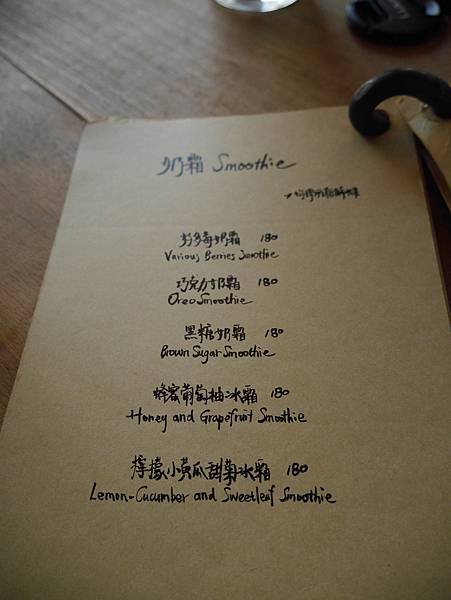 奶霜 Smoothie
好多莓奶霜 180
Various Berries Smoothie
巧克力奶霜 180
Oreo Smoothie
黑糖奶霜 180
Brown Sugar Smoothie
蜂蜜葡萄柚冰霜 180
Honey and Grapefruit Smoothie
檸檬小黃瓜甜菊冰霜 180
Lemon-Cucumber and Sweetleaf Smoothie